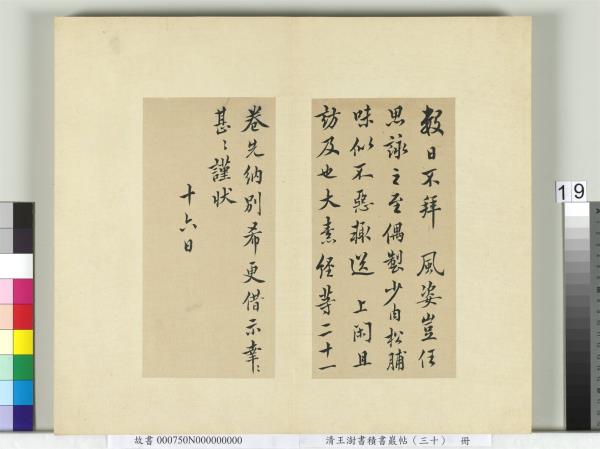 數日不拜 風姿豈任
思詠之至偶製少肉松脯
味似不惡輒送 上閑且
訪及也大素經等二十一
卷先納別希更借示幸〻
甚〻謹狀
十六日
19
故書 000750N000000000
清王澍書積書巖帖(三十) 冊